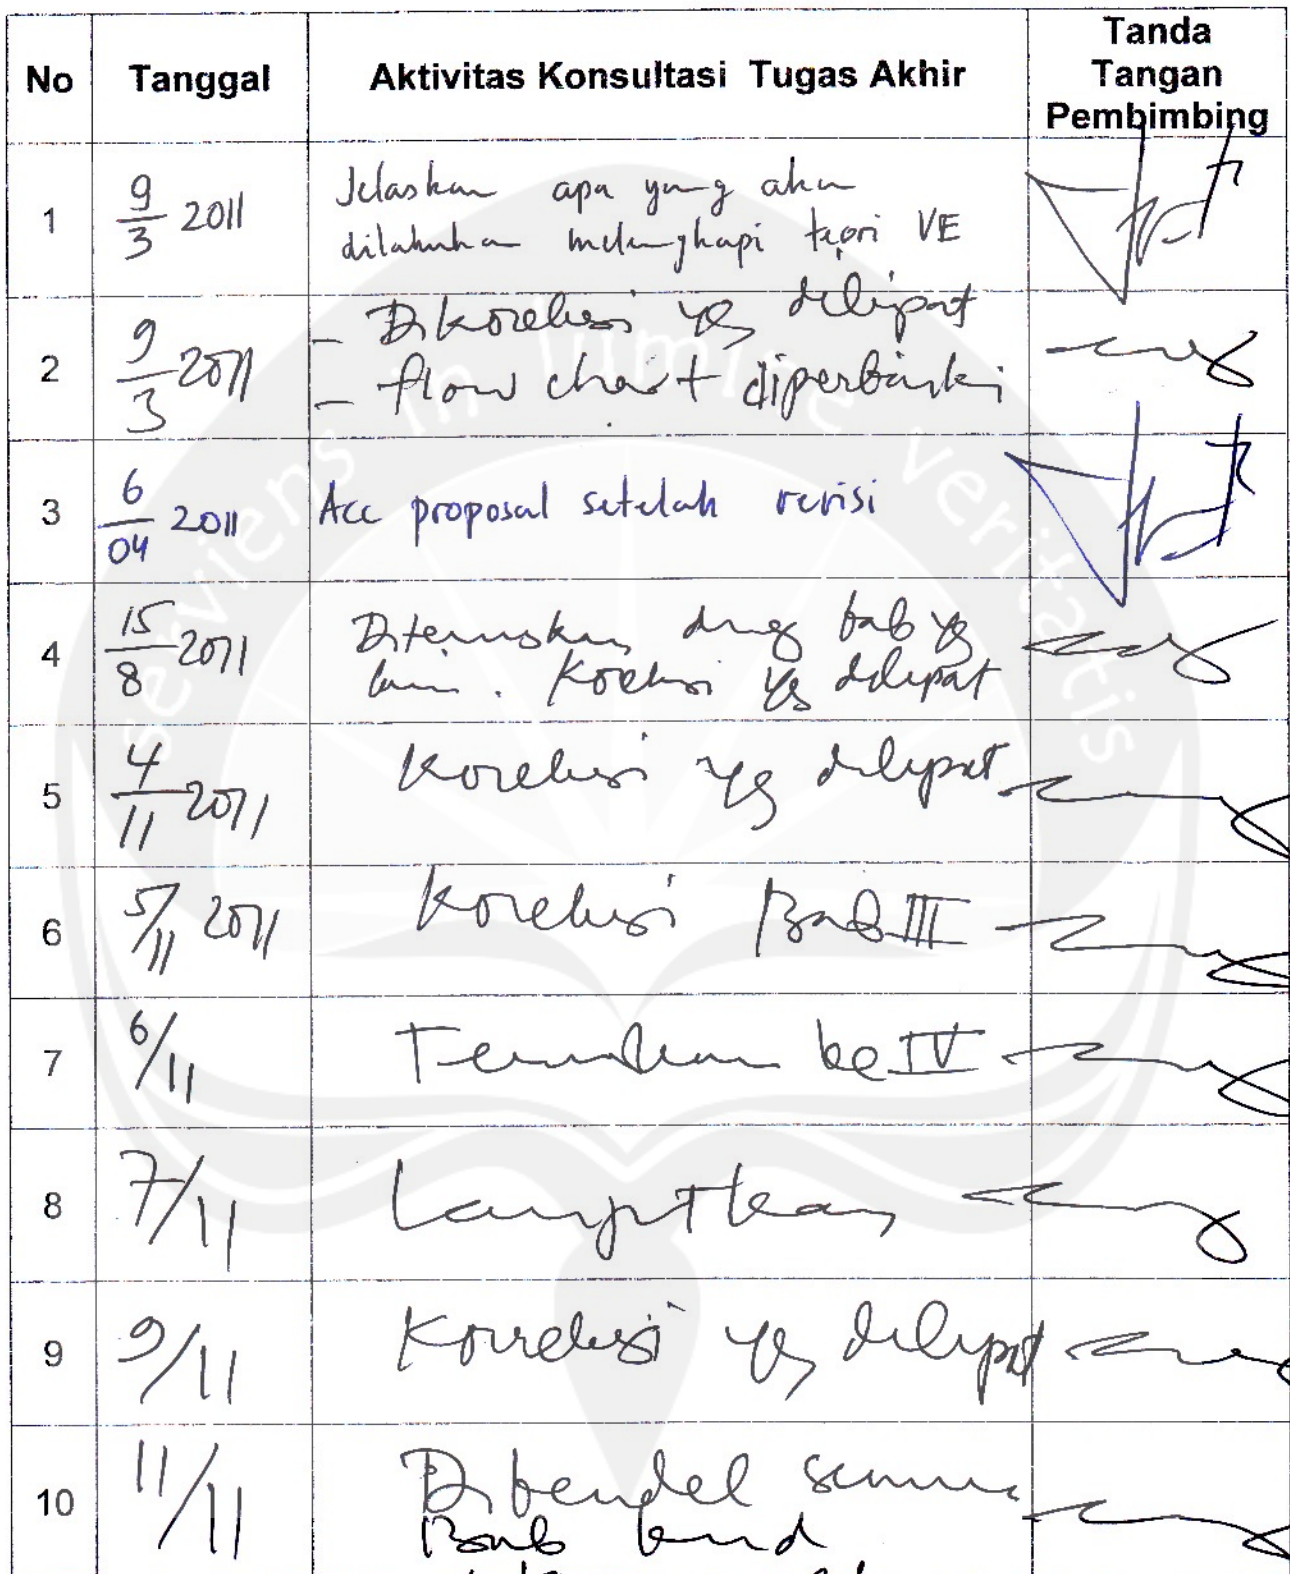 No Tanggal Aktivitas Konsultasi Tugas Akhir Tanda Tangan Pembimbing
1 9/3 2011 Jelaskan apa yang akan
dilakukan melengkapi teori VE
2 9/3 2011 - Dikoreksi yg dilipat
- flow chart diperbaiki
3 6/04 2011 Acc proposal setelah revisi
4 15/8 2011 Diteruskan dng bab yg
lain. Koreksi yg dilipat
5 4/11 2011 Koreksi yg dilipat
6 5/11 2011 Koreksi Bab III
7 6/11 Teruskan ke IV
8 7/11 Lanjutkan
9 9/11 Koreksi yg dilipat
10 11/11 Dibendel semua
Bab
serviens in lumine veritatis